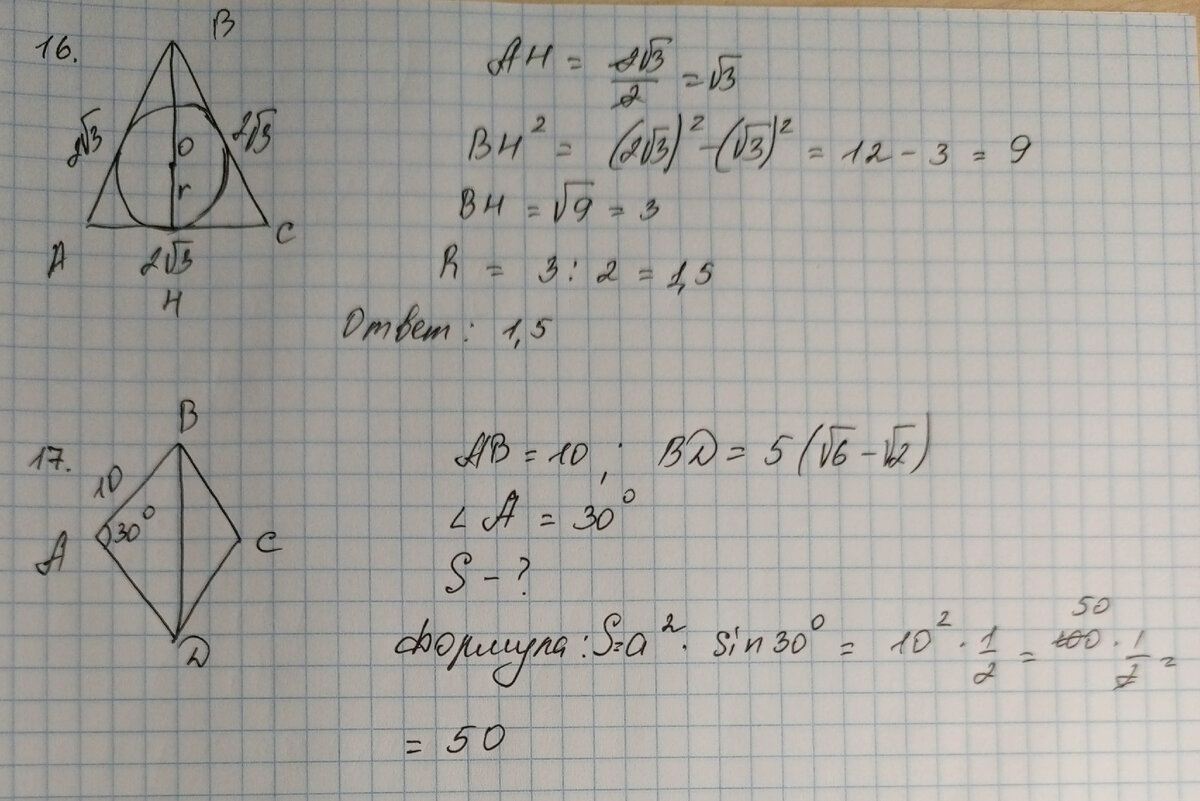 16.
B
2√3
2√3
O
r
A
C
2√3
H
AH = 2√3/2 = √3
BH² = (2√3)² - (√3)² = 12 - 3 = 9
BH = √9 = 3
R = 3 : 2 = 1,5
Ответ: 1,5
17.
B
10
30°
A
C
D
AB = 10; BD = 5(√6 - √2)
∠A = 30°
S - ?
Формула: S=a² · sin30° = 10² · 1/2 = 100 · 1/2 =
50
= 50